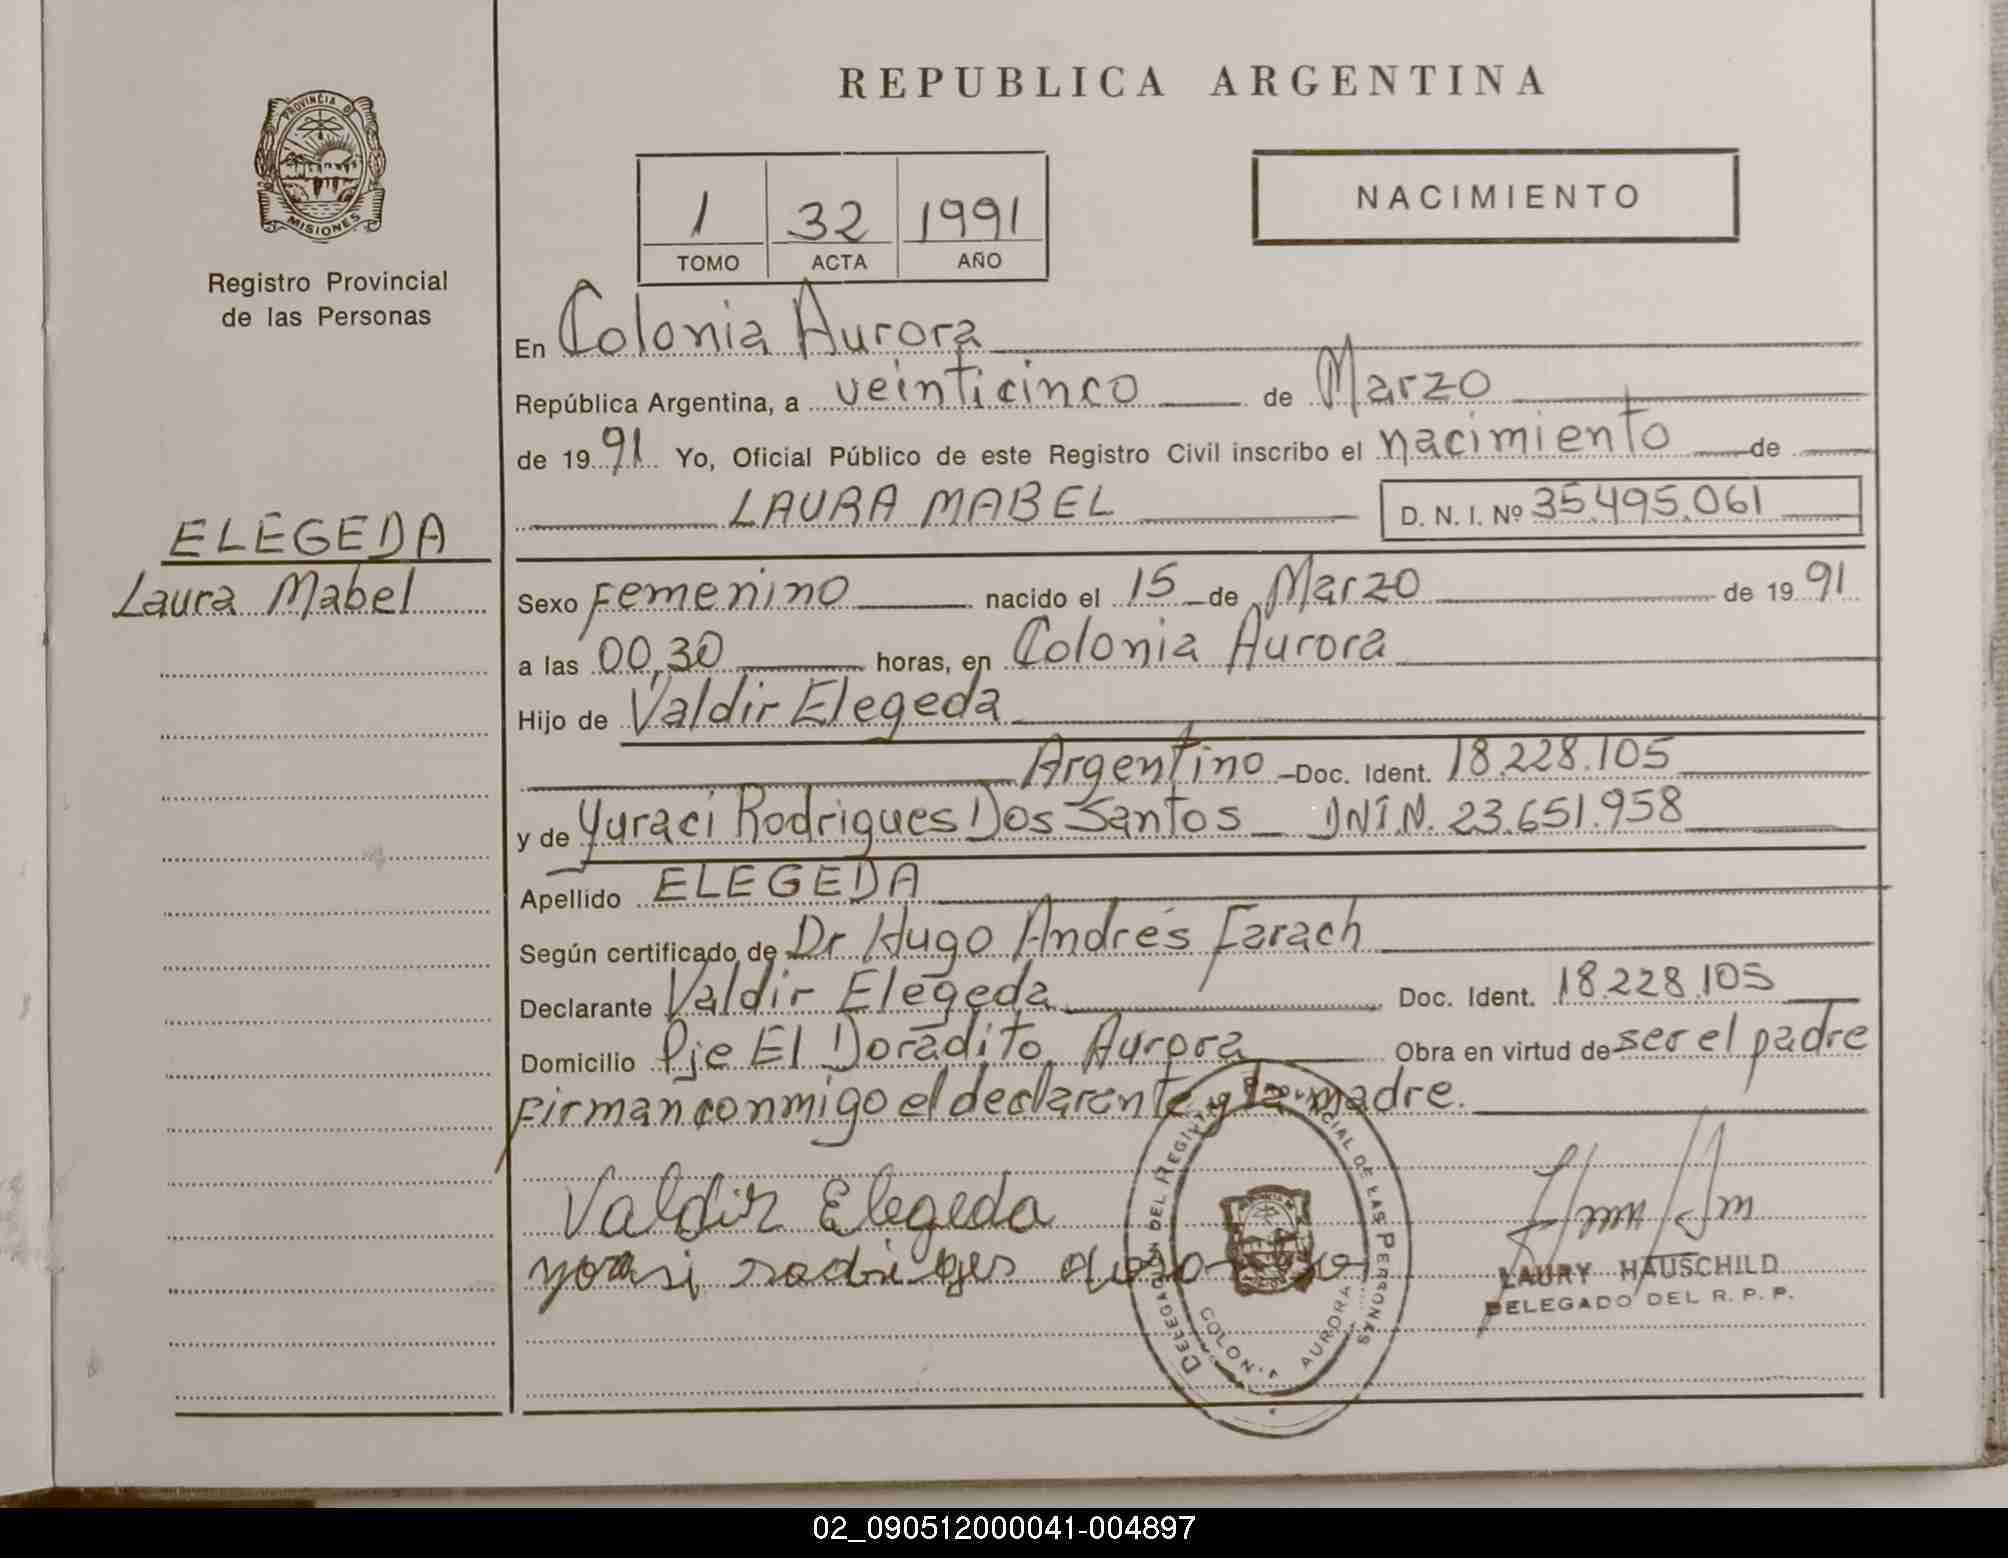 REPUBLICA ARGENTINA
PROVINCIA DE
MISIONES
Registro Provincial
de las Personas
NACIMIENTO
1 32 1991
TOMO ACTA AÑO
En Colonia Aurora
República Argentina, a veinticinco de Marzo
de 1991 Yo, Oficial Público de este Registro Civil inscribo el nacimiento de
LAURA MABEL D. N. I. Nº 35.495.061
ELEGEDA
Laura Mabel
Sexo Femenino nacido el 15 de Marzo de 1991
a las 00,30 horas, en Colonia Aurora
Hijo de Valdir Elegeda
Argentino Doc. Ident. 18.228.105
y de Yuraci Rodrigues Dos Santos DNIN. 23.651.958
Apellido ELEGEDA
Según certificado de Dr Hugo Andrés Farach
Declarante Valdir Elegeda Doc. Ident. 18.228.105
Domicilio Pje El Doradito, Aurora Obra en virtud de ser el padre
Firman conmigo el declarante y la madre.
Valdir Elegeda
DELEGACION DEL REGISTRO PROVINCIAL DE LAS PERSONAS
COLONIA AURORA
LAURY HAUSCHILD
DELEGADO DEL R. P. P.
02_090512000041-004897